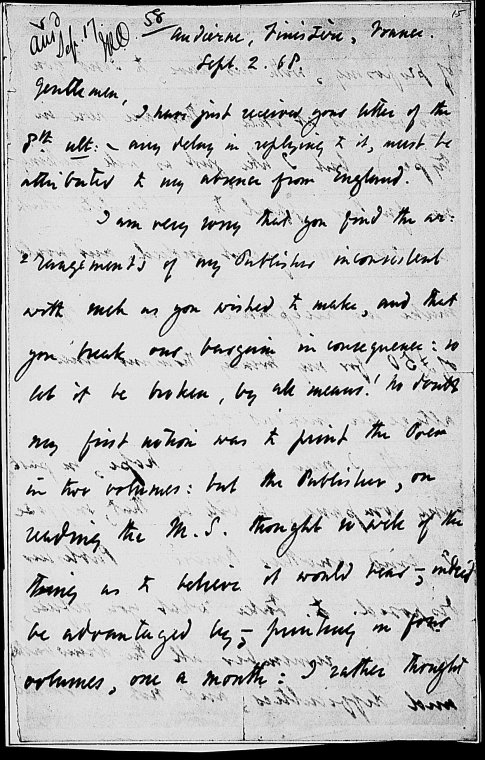 15
58
Ans'd
Sep. 17
Audierne, Finistère, France.
Sept. 2. 68.
Gentlemen,
I have just received your letter of the
8th ult: – any delay in replying to it, must be
attributed to my absence from England.
I am very sorry that you find the ar-
rangements of my Publisher inconsistent
with such as you wished to make, and that
you break our bargain in consequence: so
let it be broken, by all means! No doubt
my first notion was to print the Poem
in two volumes: but the Publisher, on
reading the M.S. thought so well of the
thing as to believe it would bear –, indeed
be advantaged by –, printing in four
volumes, one a month: I rather thought
and